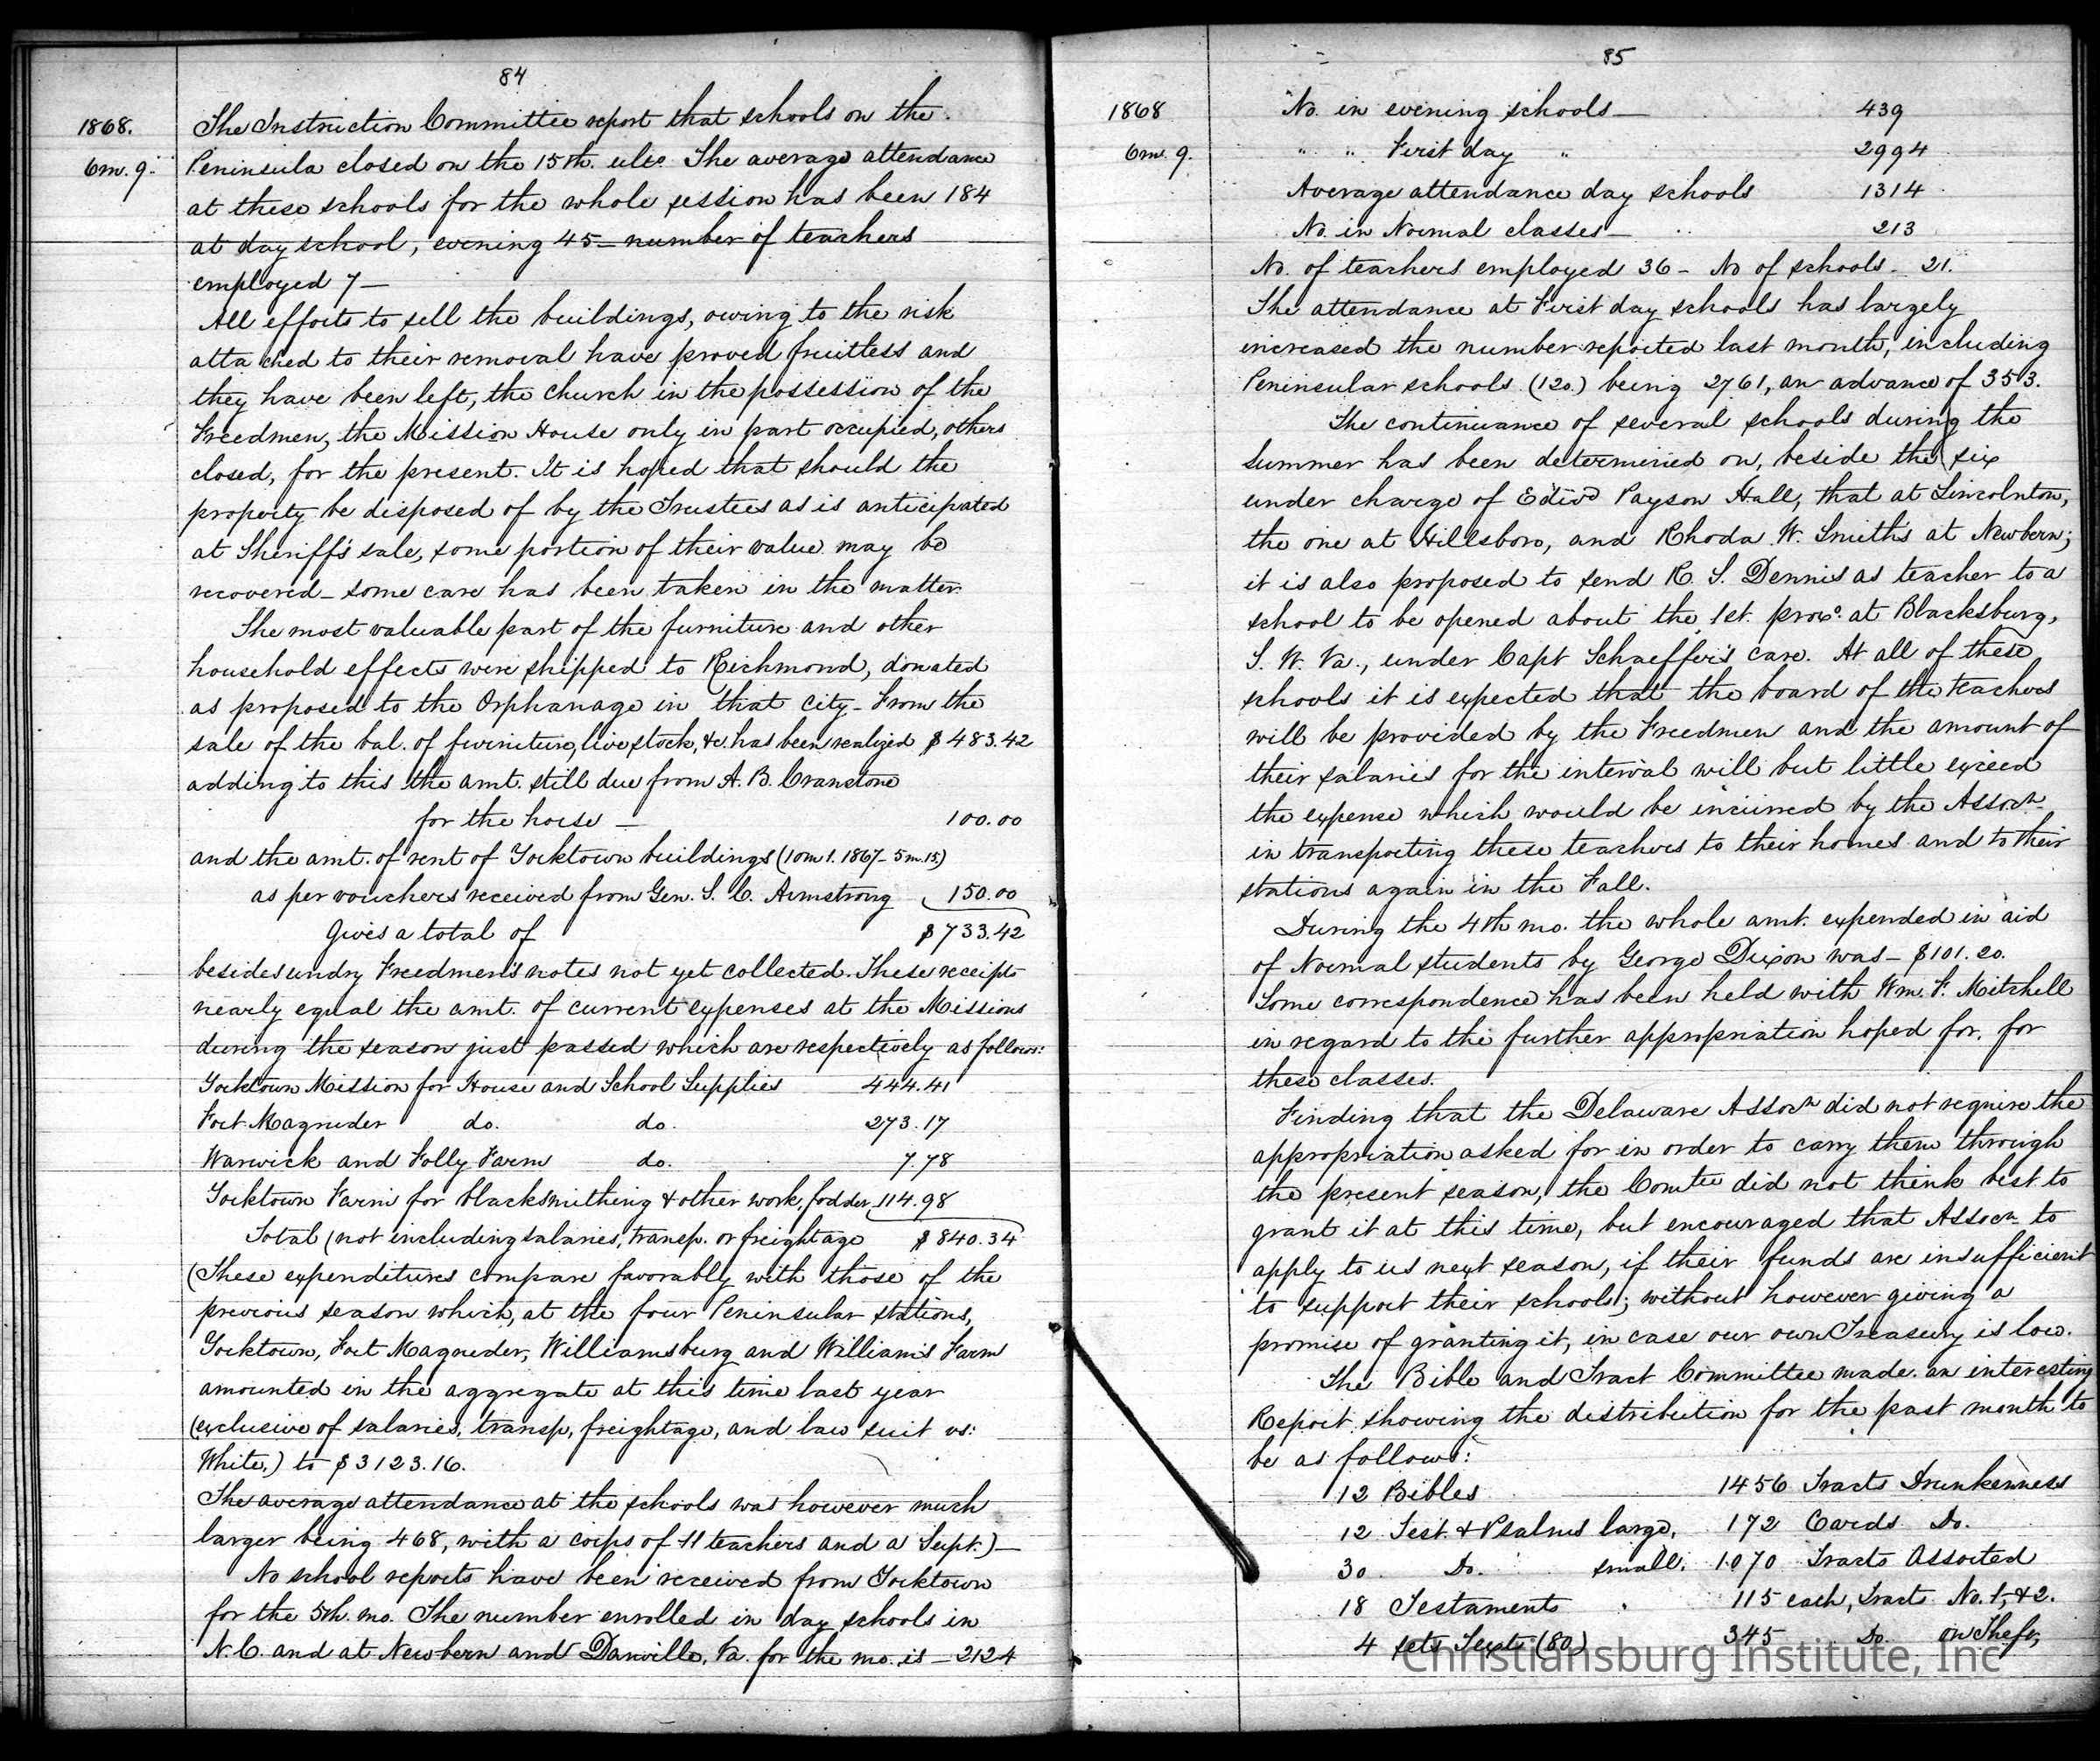 84
1868.
6m. 9.
The Instruction Committee report that schools on the
Peninsula closed on the 15th. ulto. The average attendance
at these schools for the whole session has been 184
at day school, evening 45 – number of teachers
employed 7 –
All efforts to sell the buildings, owing to the risk
attached to their removal have proved fruitless and
they have been left, the church in the possession of the
Freedmen, the Mission House only in part occupied, others
closed, for the present. It is hoped that should the
property be disposed of by the Trustees as is anticipated
at Sheriff's sale, some portion of their value may be
recovered – some care has been taken in the matter.
The most valuable part of the furniture and other
household effects were shipped to Richmond, donated
as proposed to the Orphanage in that city – From the
sale of the bal. of furniture, live stock, &c. has been realized $483.42
adding to this the amt. still due from A. B. Cranstone
for the horse – 100.00
and the amt. of rent of Yorktown buildings (10m 1. 1867 – 5m. 15)
as per vouchers received from Gen. S. C. Armstrong 150.00
Gives a total of $733.42
beside sundry Freedmen's notes not yet collected. These receipts
nearly equal the amt. of current expenses at the Missions
during the season just passed which are respectively as follows:
Yorktown Mission for House and School Supplies 444.41
Fort Magruder do. do. 273.17
Warwick and Folly Farm do. 7.78
Yorktown Farm for blacksmithing & other work, fodder 114.98
Total (not including salaries, transp. or freightage $840.34
(These expenditures compare favorably with those of the
previous season which, at the four Peninsular stations,
Yorktown, Fort Magruder, Williamsburg and William's Farm
amounted in the aggregate at this time last year
(exclusive of salaries, transp, freightage, and law suit vs:
White,) to $3123.16.
The average attendance at the schools was however much
larger being 468, with a corps of 11 teachers and a Supt.) –
No school reports have been received from Yorktown
for the 5th. mo. The number enrolled in day schools in
N.C. and at Newbern and Danville, Va. for the mo. is – 2124
85
1868
6m. 9.
No. in evening schools – 439
" " First day " 2994
Average attendance day schools 1314
No. in Normal classes – 213
No. of teachers employed 36 – No of schools – 21.
The attendance at First day schools has largely
increased the number reported last month, including
Peninsular schools (120.) being 2761, an advance of 353.
The continuance of several schools during the
summer has been determined on, beside the six
under charge of Edwd Payson Hall, that at Lincolnton,
the one at Hillsboro, and Rhoda W. Smith's at Newbern;
it is also proposed to send R. S. Dennis as teacher to a
school to be opened about the 1st. proxo. at Blacksburg,
S. W. Va., under Capt Schaeffer's care. At all of these
schools it is expected that the board of the teachers
will be provided by the Freedmen and the amount of
their salaries for the interval will but little exceed
the expense which would be incurred by the Assocn.
in transporting these teachers to their homes and to their
stations again in the Fall.
During the 4th mo. the whole amt. expended in aid
of Normal students by George Dixon was – $101.20.
Some correspondence has been held with Wm. F. Mitchell
in regard to the further appropriation hoped for, for
these classes.
Finding that the Delaware Assocn did not require the
appropriation asked for in order to carry them through
the present season, the Comtee did not think best to
grant it at this time, but encouraged that Assocn. to
apply to us next season, if their funds are insufficient
to support their schools; without however giving a
promise of granting it, in case our own Treasury is low.
The Bible and Tract Committee made an interesting
Report showing the distribution for the past month to
be as follows:
12 Bibles 1456 Tracts Drunkenness
12 Test. & Psalms large, 172 Cards Do.
30 Do. small. 1070 Tracts Assorted
18 Testaments 115 each, Tracts No. 1, & 2.
4 sets Texts (80) 345 Do. on Theft,
Christiansburg Institute, Inc